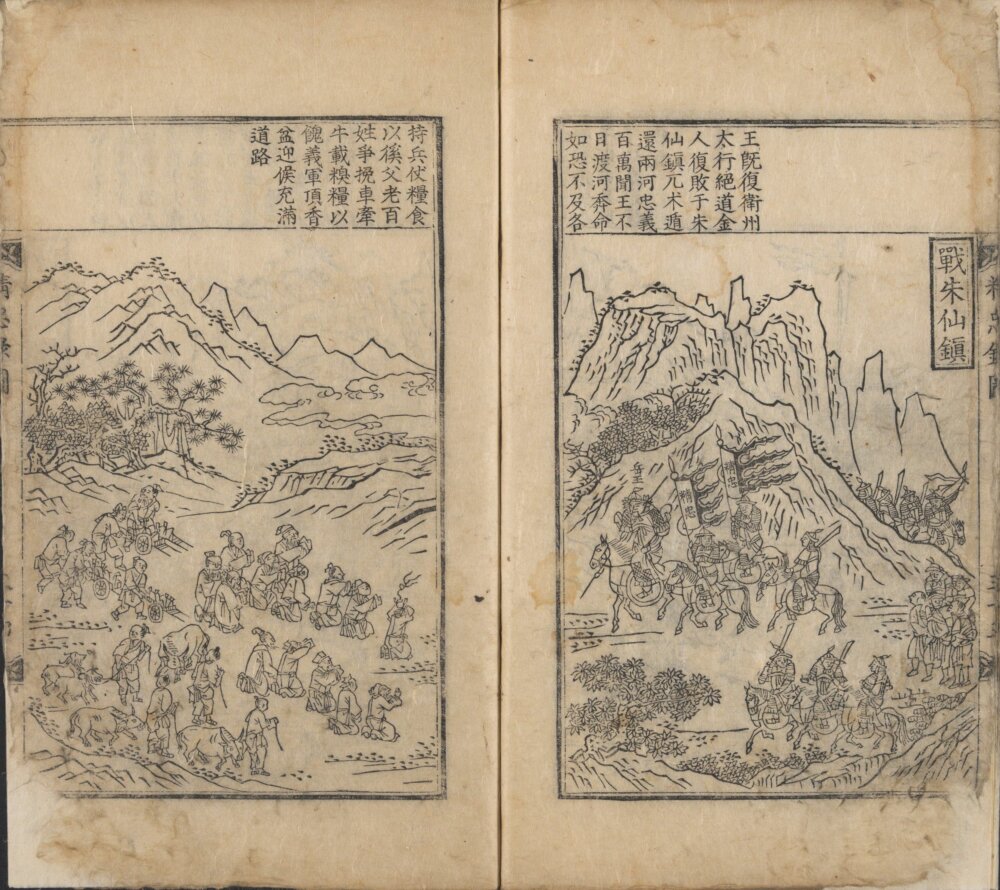 戰朱仙鎮
王既復衛州
太行絕道金
人復敗于朱
仙鎮兀术遁
還兩河忠義
百萬聞王不
日渡河奔命
如恐不及各
岳王
精忠
精忠
持兵仗糧食
以徯父老百
姓爭挽車牽
牛載糗糧以
餽義軍頂香
盆迎候充滿
道路